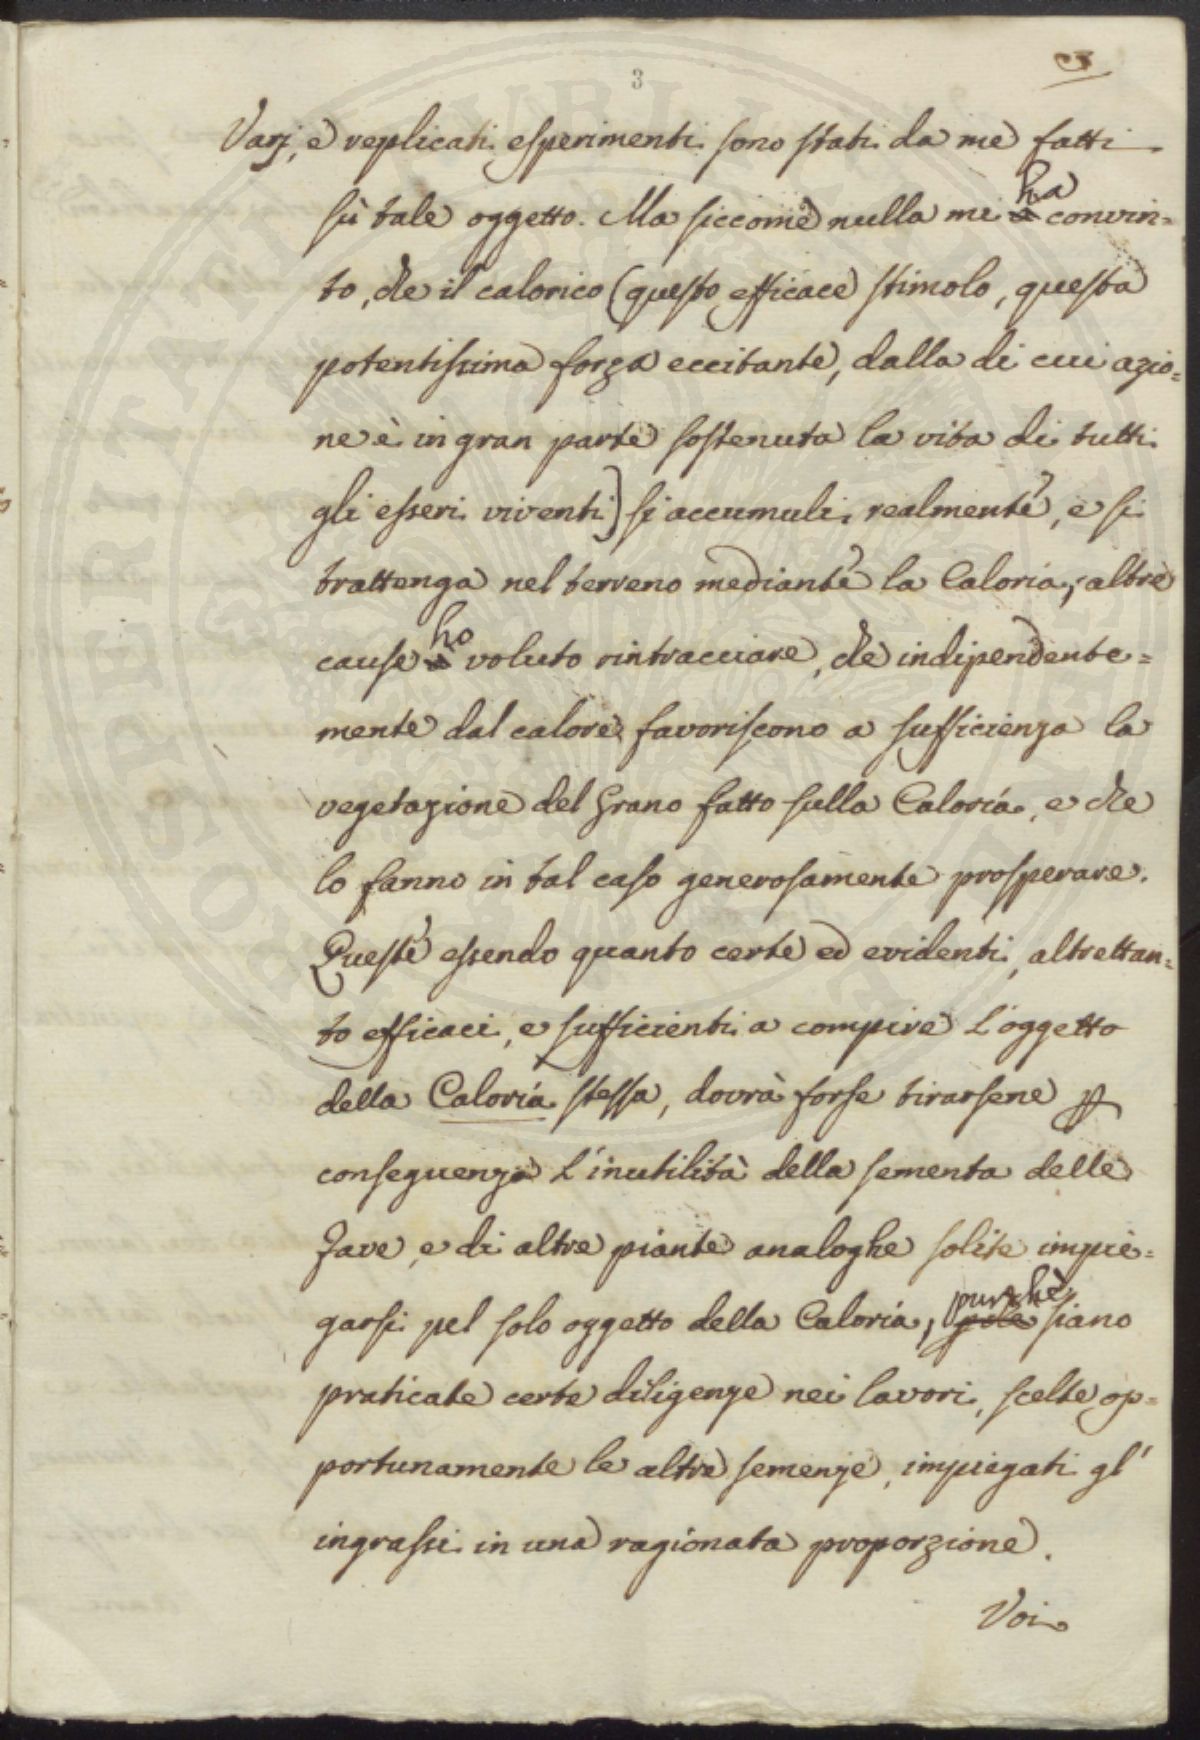 3
Varj, e replicati esperimenti sono stati da me fatti
sù tale oggetto. Ma siccome nulla mi ha convin=
to, che il calorico (questo efficace stimolo, questa
potentissima forza eccitante, dalla di cui azio=
ne è in gran parte sostenuta la vita di tutti
gli esseri viventi) si accumuli realmente, e si
trattenga nel terreno mediante la Caloria; altre
cause ho voluto rintracciare, che indipendente=
mente dal calore favoriscono a sufficienza la
vegetazione del Grano fatto sulla Caloría, e che
lo fanno in tal caso generosamente prosperare.
Queste essendo quanto certe ed evidenti, altrettan=
to efficaci, e sufficienti a compire l'oggetto
della Caloría stessa, dovrà forse tirarsene p
conseguenza l'inutilità della sementa delle
fave, e di altre piante analoghe solite impie=
garsi pel solo oggetto della Caloría, purchè siano
praticate certe diligenze nei lavori, scelte op=
portunamente le altre semenze, impiegati gl'
ingrassi in una ragionata proporzione.
Voi